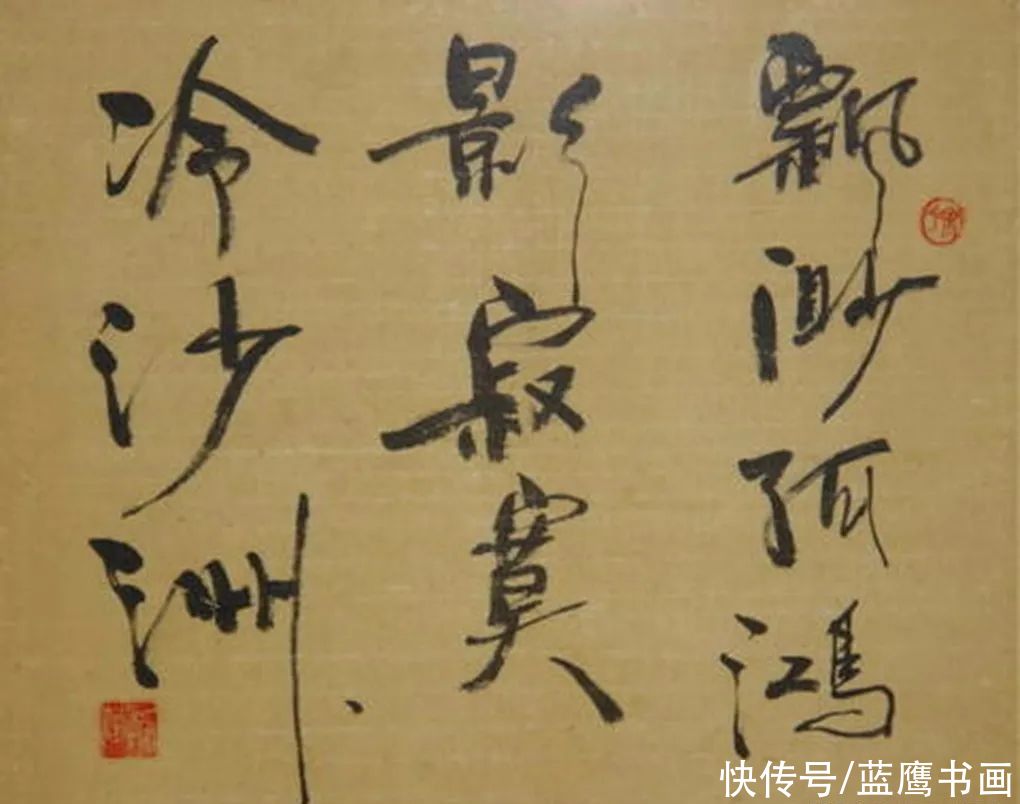 飘渺孤鸿
影寂寞
冷沙洲
快传号/蓝鹰书画